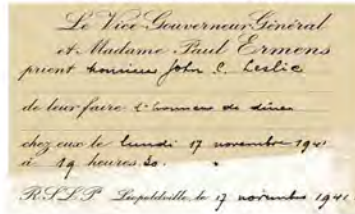 Le Vice-Gouverneur Général
et Madame Paul Ermens
prient monsieur John C. Leslie
de leur faire l'honneur de dîner
chez eux le lundi 17 novembre 1941
à 19 heures 30.
R.S.L.P. Léopoldville, le 17 novembre 1941